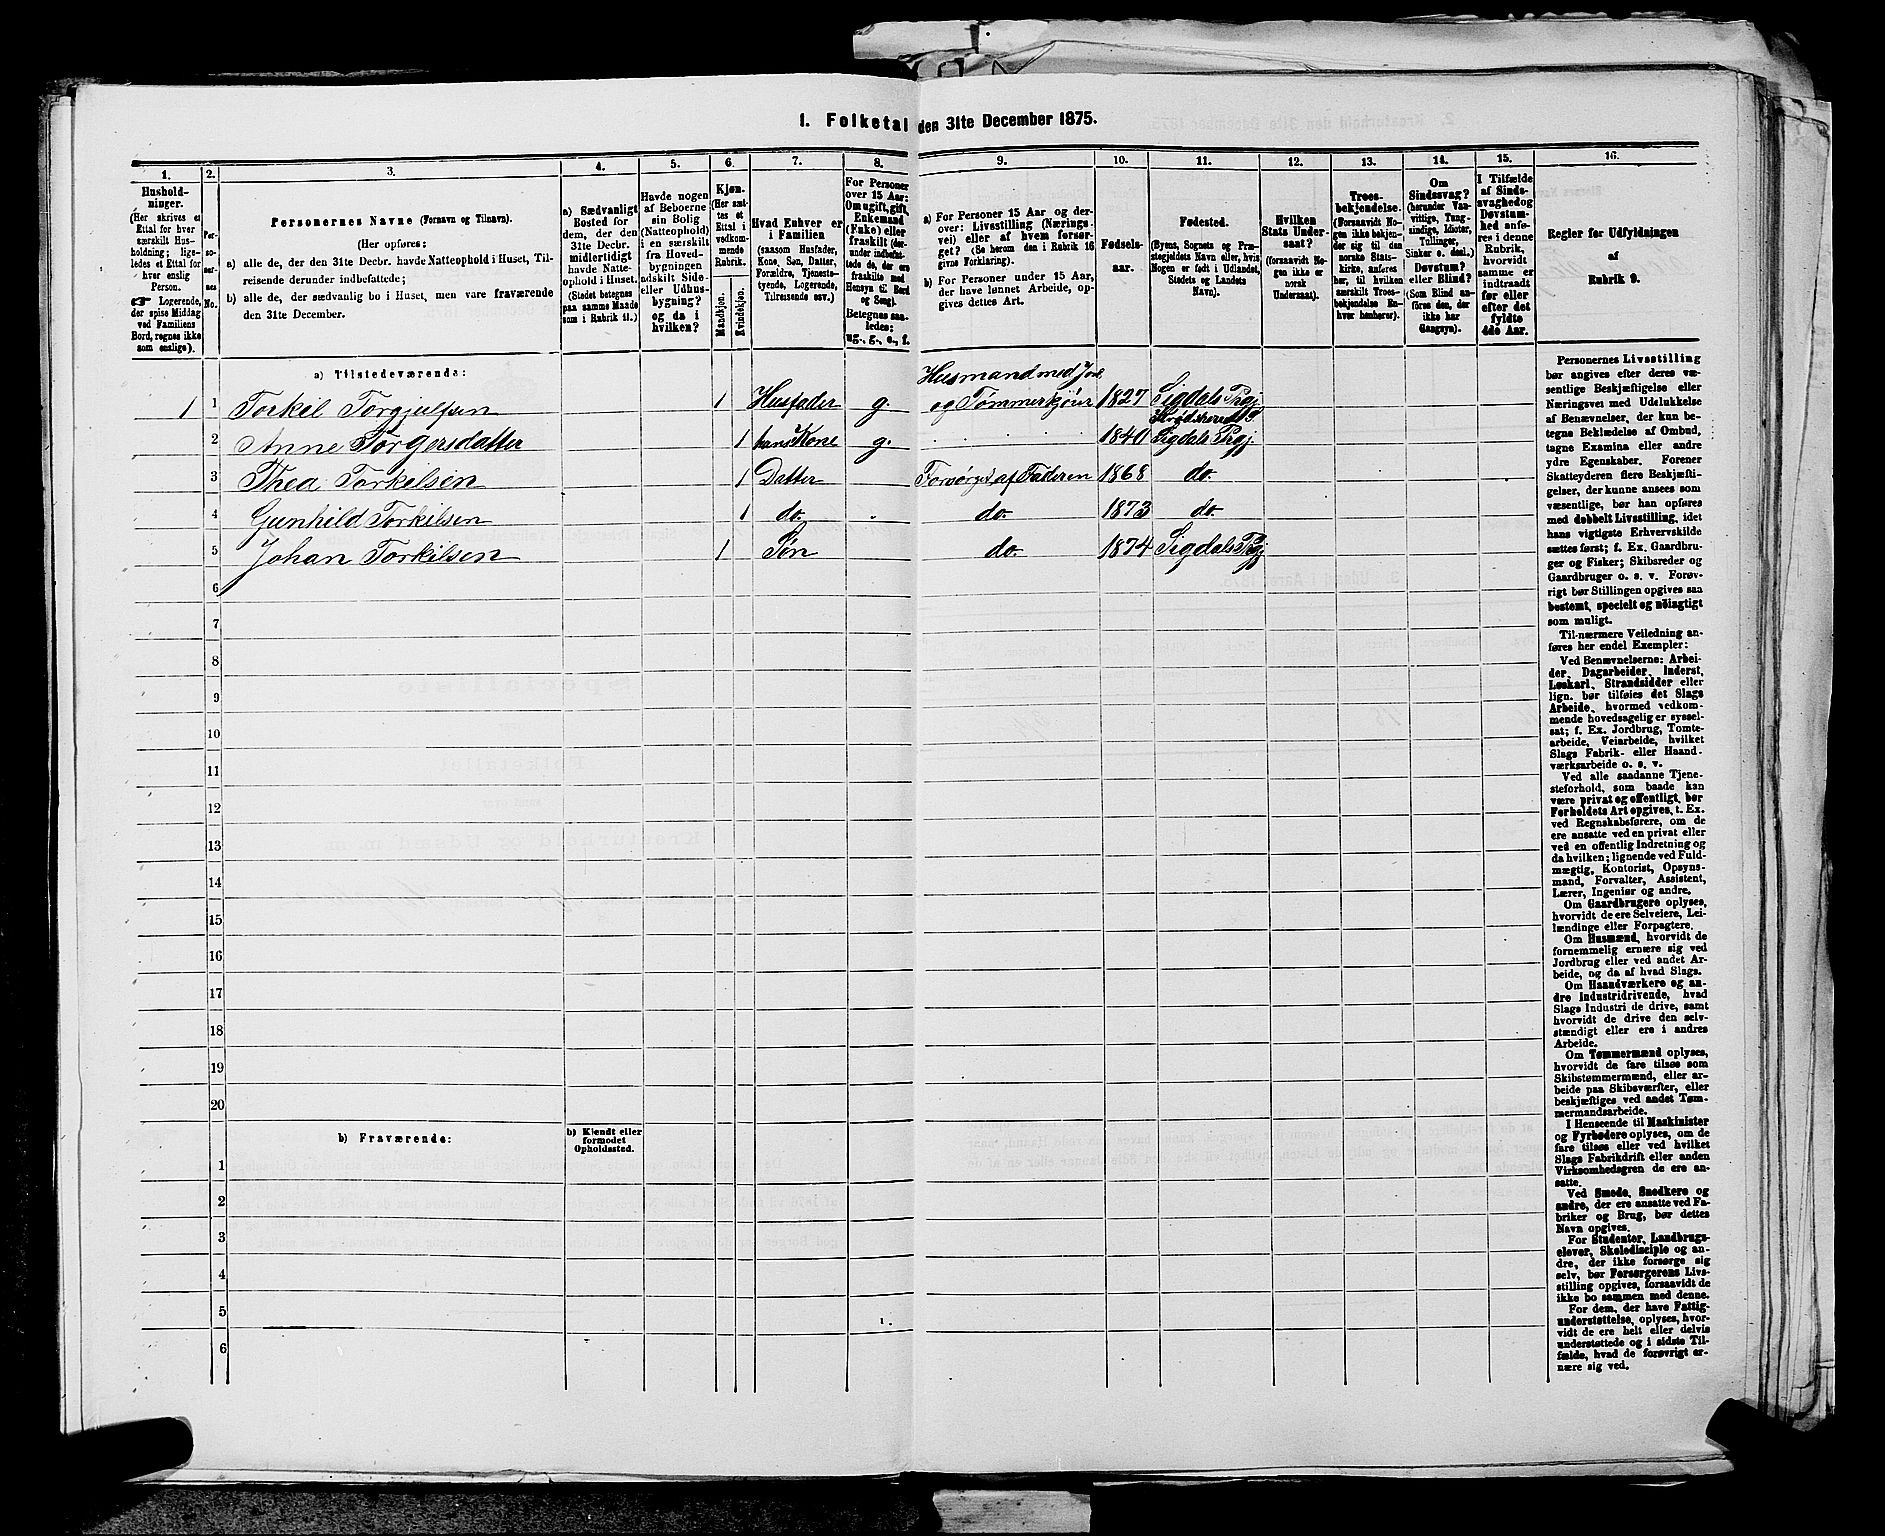 1. Folketal den 31te December 1875.
1.
2.
3.
4.
5.
6.
7.
8.
9.
10.
11.
12.
13.
14.
15.
16.
Hushold-
ninger.
(Her skrives et
Ettal for hver
særskilt Hus-
holdning; lige-
ledes et Ettal for
hver enslig
Person.
☛ Logerende,
der spise Middag
ved Familiens
Bord, regnes ikke
som enslige).
Per-
soner-
nes
No.
Personernes Navne (Fornavn og Tilnavn).
(Her opføres:
a) alle de, der den 31te Decbr. havde Natteophold i Huset, Til-
reisende derunder indbefattede;
b) alle de, der sædvanlig bo i Huset, men vare fraværende
den 31te December.
a) Sædvanligt
Bosted for
dem, der den
31te Decbr.
midlertidigt
havde Natte-
ophold i Huset.
(Stedet betegnes
paa samme Maade
som i Rubrik 11.)
Havde nogen
af Beboerne
sin Bolig
(Natteophold)
i en særskilt
fra Hoved-
bygningen
adskilt Side-
eller Udhus-
bygning?
og da i
hvilken?
Kjøn.
(Her sæt-
tes et
Ettal i
vedkom-
mende
Rubrik.
Mandkjøn.
Kvindekjøn.
Hvad Enhver er
i Familien
(saasom Husfader,
Kone, Søn, Datter,
Forældre, Tjeneste-
tyende, Logerende,
Tilreisende osv.)
For Personer
over 15 Aar:
Om ugift, gift,
Enkemand
(Enke) eller
fraskilt (der-
under indbefat-
tede de, der ere
fraskilte med
Hensyn til Bord
og Seng).
Betegnes saa-
ledes:
ug., g., e., f.
a) For Personer 15 Aar og der-
over: Livsstilling (Nærings-
vei) eller af hvem forsør-
get? (Se herom den i Rubrik 16
givne Forklaring).
b) For Personer under 15 Aar,
der have lønnet Arbeide, op-
gives dettes Art.
Fødsels-
aar.
Fødested.
(Byens, Sognets og Præ-
stegjeldets Navn eller, hvis
Nogen er født i Udlandet,
Stedets og Landets
Navn).
Hvilken
Stats Under-
saat?
(forsaavidt No-
gen ikke er
norsk
Undersaat).
Troes-
bekjendelse.
(Forsaavidt No-
gen ikke bekjen-
der sig til den
norske Stats-
kirke, anføres
her, til hvilken
særskilt Troes-
bekjendelse En-
hver henhører).
Om
Sindssvag?
(herunder Van-
vittige, Tung-
sindige, Idioter,
Tullinger,
Sinker o. desl.)
Døvstum?
eller Blind?
(Som Blind an-
føres den, der
ikke har
Gangsyn).
I Tilfælde
af Sinds-
svaghed og
Døvstum-
hed anfø-
res i denne
Rubrik,
hvorvidt
samme er
indtraadt
før eller
efter det
fyldte
4de Aar.
Regler for Udfyldningen
af
Rubrik 9.
a) Tilstedeværende:
1 1 Torkel Torgjulfsen 1 Husfader g. Husmand med Jord og Tømmerkjører 1827 Sigdals Prgj.
2 Anne Torgersdatter 1 hans Kone g. 1840 Sigdals Prgj.
3 Thea Torkilsen 1 Datter Forsørget af Faderen 1868 do.
4 Gunhild Torkilsen 1 do. do. 1873 do.
5 Johan Torkilsen 1 Søn do. 1874 Sigdals Prgj.
6
7
8
9
10
11
12
13
14
15
16
17
18
19
20
b) Fraværende:
b) Kjendt eller
formodet
Opholdssted.
1
2
3
4
5
6
Personernes Livsstilling
bør angives efter deres væ-
sentlige Beskjæftigelse eller
Næringsvei med Udelukkelse
af Benævnelser, der kun be-
tegne Beklædelse af Ombud,
tagne Examina eller andre
ydre Egenskaber. Forener
Skatteyderen flere Beskjæfti-
gelser, der kunne ansees som
væsentlige, bør han opføres
med dobbelt Livsstilling, idet
hans vigtigste Erhvervskilde
sættes først; f. Ex. Gaardbru-
ger og Fisker; Skibsreder og
Gaardbruger o. s. v. Forøv-
rigt bør Stillingen opgives saa
bestemt, specielt og nöiagtigt
som muligt.
Til nærmere Veiledning an-
føres her endel Exempler:
Ved Benævnelserne: Arbei-
der, Dagarbeider, Inderst,
Løskarl, Strandsidder eller
lign. bør tilføies det Slags
Arbeide, hvormed vedkom-
mende hovedsagelig er syssel-
sat; f. Ex. Jordbrug, Tomte-
arbeide, Veiarbeide, hvilket
Slags Fabrik- eller Haand-
værksarbeide o. s. v.
Ved alle saadanne Tjene-
steforhold, som baade kan
være privat og offentligt, bør
Forholdets Art opgives, t. Ex.
ved Regnskabsførere, om de
ere ansatte ved en privat eller
ved en offentlig Indretning og
da hvilken; lignende ved Fuld-
mægtig, Kontorist, Opsyns-
mand, Forvalter, Assistent,
Lærer, Ingeniør og andre.
Om Gaardbrugere oplyses,
hvorvidt de ere Selveiere, Lei-
lændinge eller Forpagtere.
Om Husmænd, hvorvidt de
fornemmelig ernære sig ved
Jordbrug eller ved andet Ar-
beide, og da af hvad Slags.
Om Haandværkere og an-
dre Industridrivende, hvad
Slags Industri de drive, samt
hvorvidt de drive den selv-
stændigt eller ere i andres
Arbeide.
Om Tømmermænd oplyses,
hvorvidt de fare tilsøs som
Skibstømmermænd, eller ar-
beide paa Skibsværfter, eller
beskjæftiges ved andet Tøm-
mermandsarbeide.
I Henseende til Maskinister
og Fyrbødere oplyses, om de
fare tilsøs eller ved hvilket
Slags Fabrikdrift eller anden
Virksomhedsgren de ere an-
satte.
Ved Smede, Snedkere og
andre, der ere ansatte ved Fa-
briker og Brug, bør dettes
Navn opgives.
For Studenter, Landbrugs-
elever, Skoledisciple og an-
dre, der ikke forsørge sig
selv, bør Forsørgerens Livs-
stilling opgives, forsaavidt de
ikke bo sammen med denne.
For dem, der have Fattig-
understøttelse, oplyses, hvor-
vidt de ere helt eller delvis
understøttede og i sidste Til-
fælde, hvad de forøvrigt er-
nære sig ved.